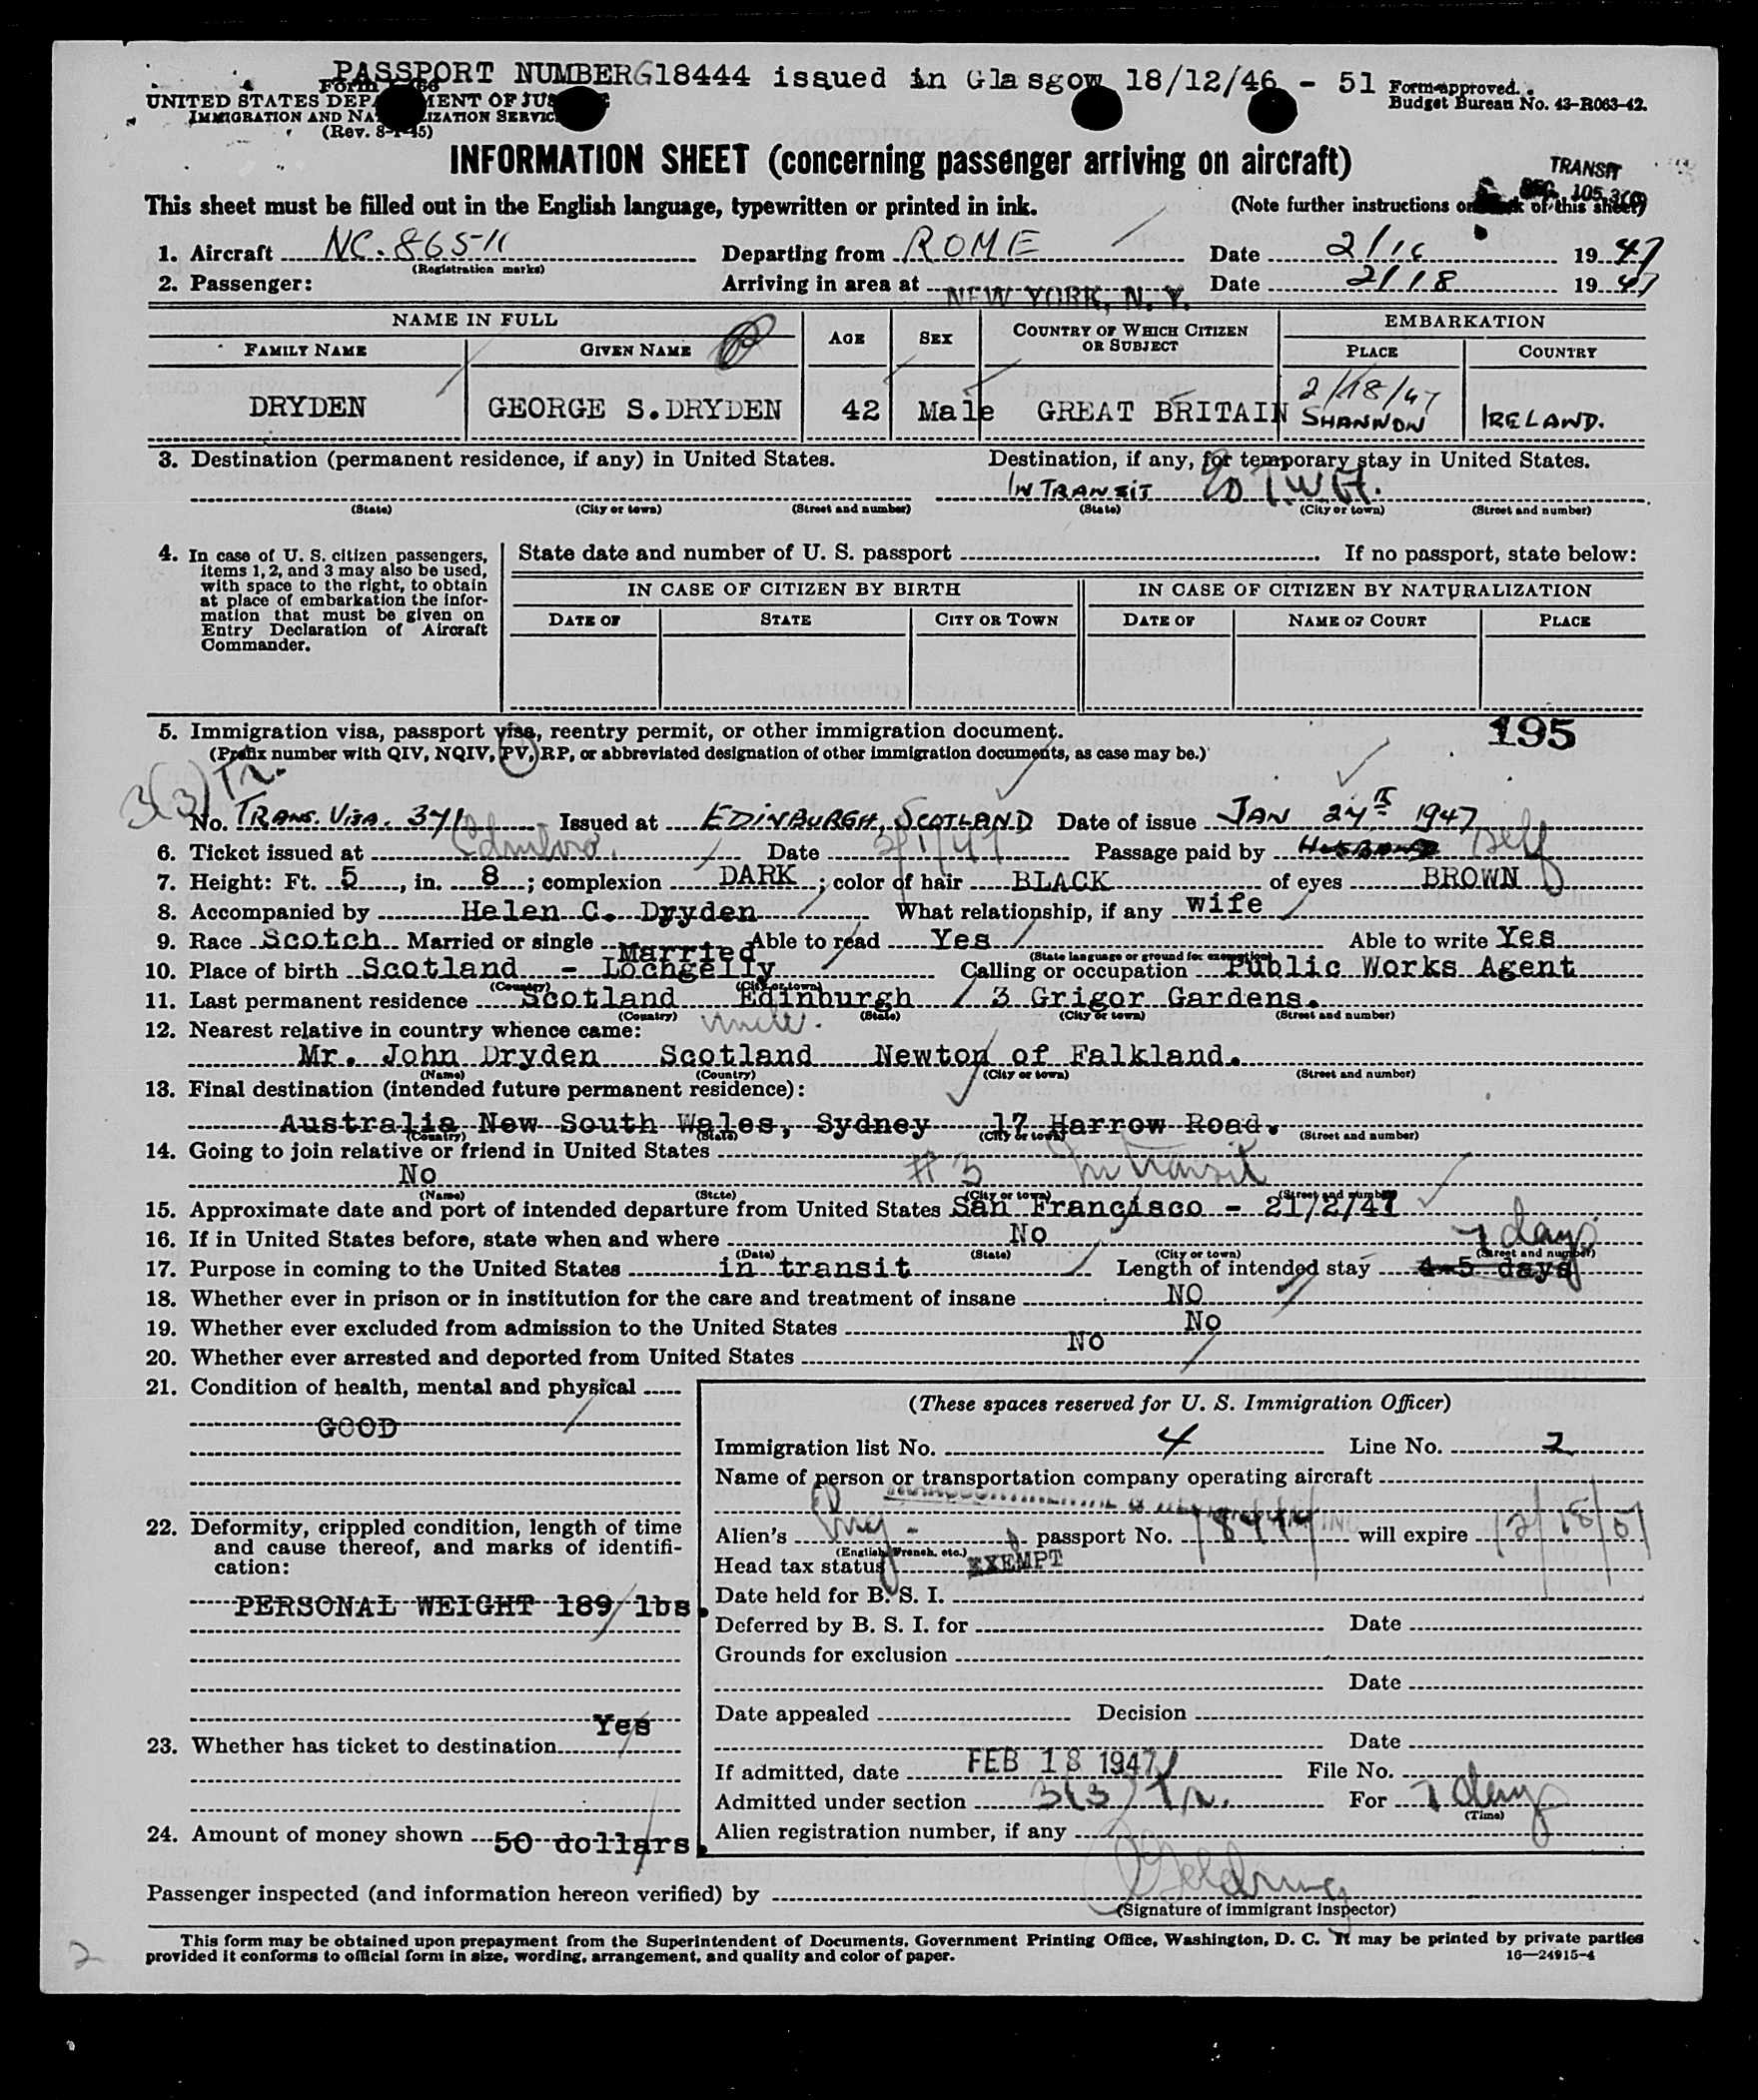 PASSPORT NUMBER G18444 issued in Glasgow 18/12/46 - 51
Form approved.
Budget Bureau No. 43-R063-42.
UNITED STATES
IMMIGRATION AND
(Rev. 8-1-45)
INFORMATION SHEET (concerning passenger arriving on aircraft)
TRANSIT
This sheet must be filled out in the English language, typewritten or printed in ink. (Note further instructions on of this sheet)
1. Aircraft (Registration marks) Departing from ROME Date 2/16 1947
2. Passenger: Arriving in area at NEW YORK, N. Y. Date 2/18 1947
NAME IN FULL AGE SEX COUNTRY OF WHICH CITIZEN OR SUBJECT EMBARKATION
FAMILY NAME GIVEN NAME PLACE COUNTRY
2/18/47
DRYDEN GEORGE S.DRYDEN 42 Male GREAT BRITAIN SHANNON IRELAND.
3. Destination (permanent residence, if any) in United States. Destination, if any, for temporary stay in United States.
IN TRANSIT c/o T.W.A.
(State) (City or town) (Street and number) (State) (City or town) (Street and number)
4. In case of U. S. citizen passengers, items 1, 2, and 3 may also be used, with space to the right, to obtain at place of embarkation the information that must be given on Entry Declaration of Aircraft Commander.
State date and number of U. S. passport If no passport, state below:
IN CASE OF CITIZEN BY BIRTH IN CASE OF CITIZEN BY NATURALIZATION
DATE OF STATE CITY OR TOWN DATE OF NAME OF COURT PLACE
5. Immigration visa, passport visa, reentry permit, or other immigration document. 195
(Prefix number with QIV, NQIV, PV, RP, or abbreviated designation of other immigration documents, as case may be.)
3(3) Tr.
No. TRANS. VISA. 341 Issued at EDINBURGH, SCOTLAND Date of issue JAN 24th 1947
6. Ticket issued at Date 2/1/47 Passage paid by HUSBAND Self
7. Height: Ft. 5, in. 8; complexion DARK; color of hair BLACK of eyes BROWN
8. Accompanied by Helen C. Dryden What relationship, if any wife
9. Race Scotch Married or single Married Able to read Yes (State language or ground for exemption) Able to write Yes
10. Place of birth Scotland - Lochgelly (Country) (City or town) Calling or occupation Public Works Agent
11. Last permanent residence Scotland Edinburgh 3 Grigor Gardens.
(Country) (State) (City or town) (Street and number)
12. Nearest relative in country whence came: Uncle.
Mr. John Dryden Scotland Newton of Falkland.
(Name) (Country) (City or town) (Street and number)
13. Final destination (intended future permanent residence):
Australia New South Wales, Sydney 17 Harrow Road.
(Country) (State) (City or town) (Street and number)
14. Going to join relative or friend in United States
No #3 In transit
(Name) (State) (City or town) (Street and number)
15. Approximate date and port of intended departure from United States San Francisco - 21/2/47
16. If in United States before, state when and where No
(Date) (State) (City or town) (Street and number)
7 days
17. Purpose in coming to the United States in transit Length of intended stay 4-5 days
18. Whether ever in prison or in institution for the care and treatment of insane NO
19. Whether ever excluded from admission to the United States No
20. Whether ever arrested and deported from United States No
21. Condition of health, mental and physical
GOOD
22. Deformity, crippled condition, length of time and cause thereof, and marks of identification:
PERSONAL WEIGHT 189 lbs.
23. Whether has ticket to destination Yes
24. Amount of money shown 50 dollars.
(These spaces reserved for U. S. Immigration Officer)
Immigration list No. 4 Line No. 2
Name of person or transportation company operating aircraft
Alien's (English, French, etc.) passport No. 18444 will expire 12/18/51
Head tax status EXEMPT
Date held for B. S. I.
Deferred by B. S. I. for Date
Grounds for exclusion
Date
Date appealed Decision
Date
If admitted, date FEB 18 1947 File No.
Admitted under section 3(3) Tr. For 7 days (Time)
Alien registration number, if any
Passenger inspected (and information hereon verified) by
(Signature of immigrant inspector)
This form may be obtained upon prepayment from the Superintendent of Documents, Government Printing Office, Washington, D. C. It may be printed by private parties
provided it conforms to official form in size, wording, arrangement, and quality and color of paper. 16—24915-4
2